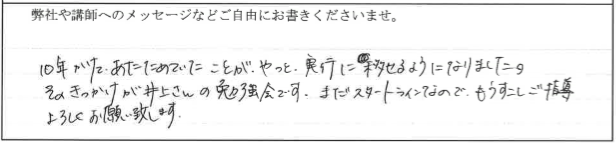 弊社や講師へのメッセージなどご自由にお書きくださいませ。
10年がたで、あたためていたことが、やっと、実行に移せるようになりました。
そのきっかけが井上さんの勉強会です。まだスタートラインなので、もうすこしご指導
よろしくお願い致します。